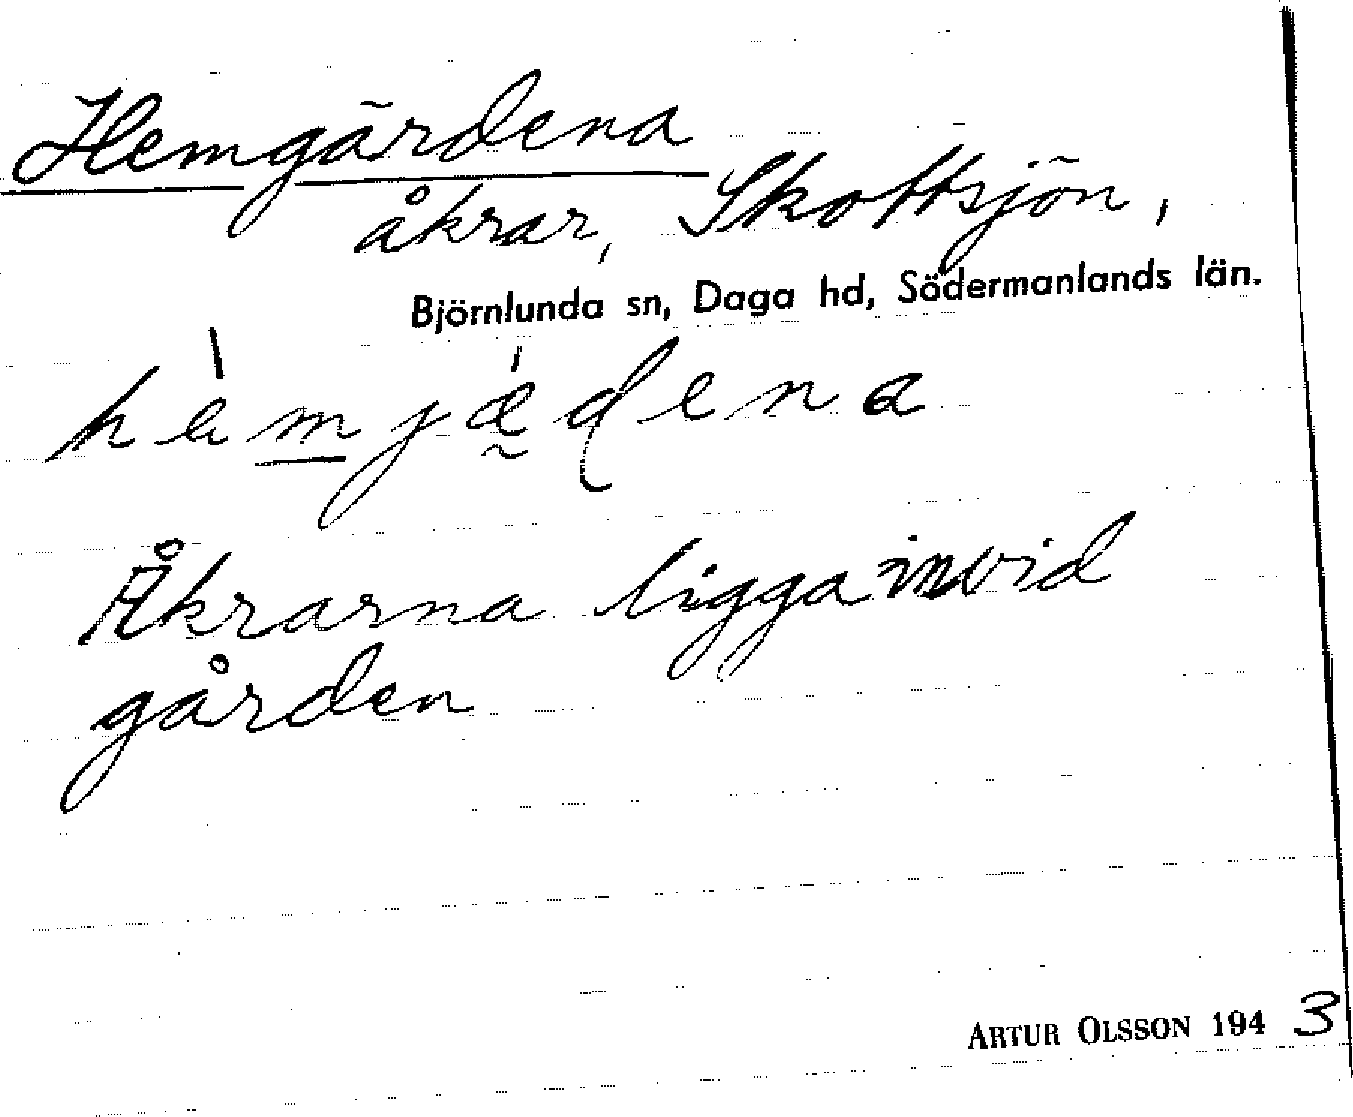 Hemgärdena
åkrar, Skottsjön,
Björnlunda sn, Daga hd, Södermanlands län.
hèmjædena
Åkrarna ligga invid
gården
ARTUR OLSSON 1943